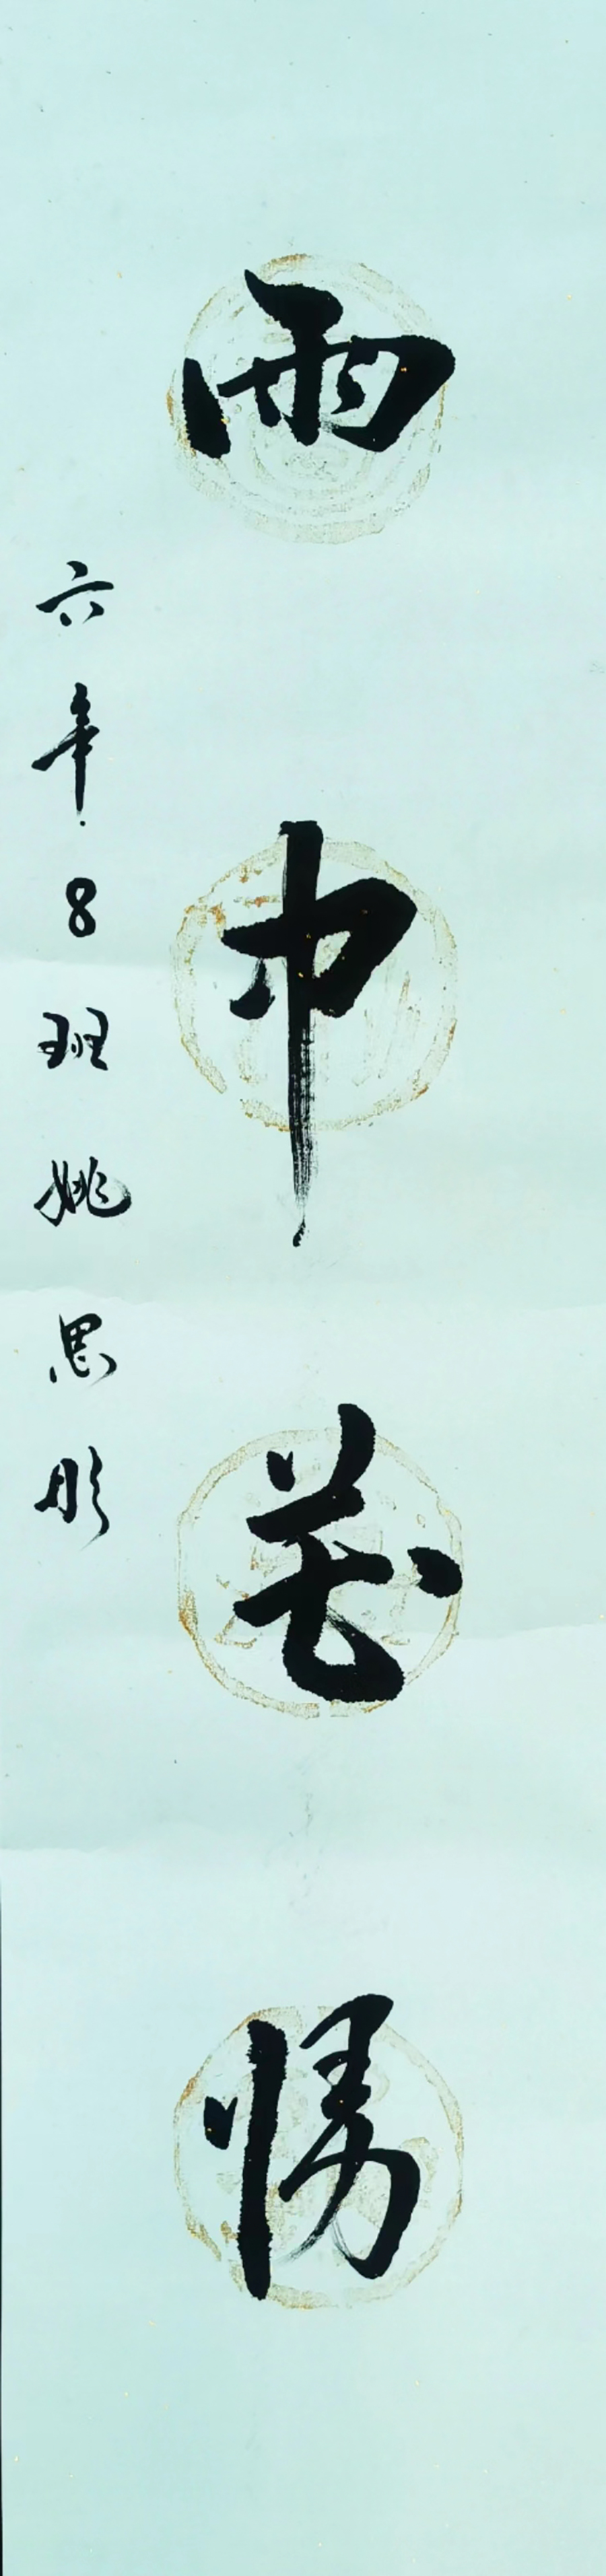 雨中花慢
六年8班姚思彤